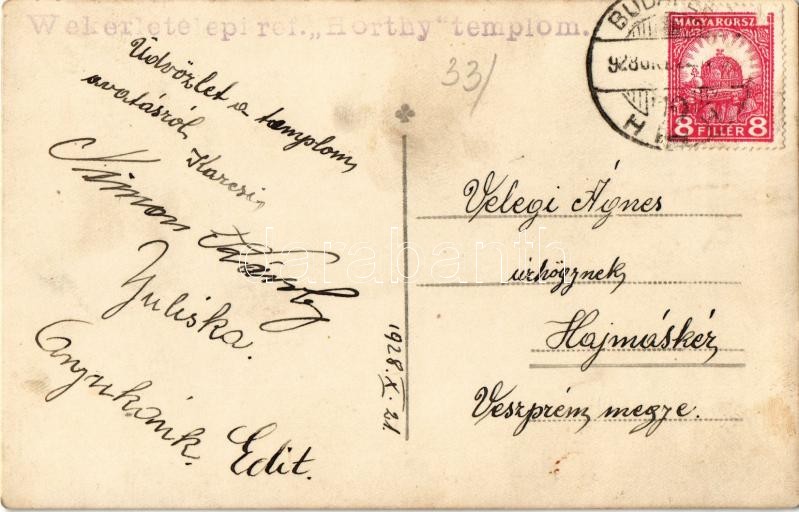 Wekerletelepi ref. „Horthy" templom.
33/
Üdvözlet a templom
avatásról
Karcsi
Simon Károly
Juliska.
Anyukánk.
Edit.
1928. X. 21.
BUDAPEST
928 OKT.
MAGYARORSZ
8 FILLÉR 8
Velegi Ágnes
úrhögynek
Hajmáskér
Veszprém megye.
darabanth